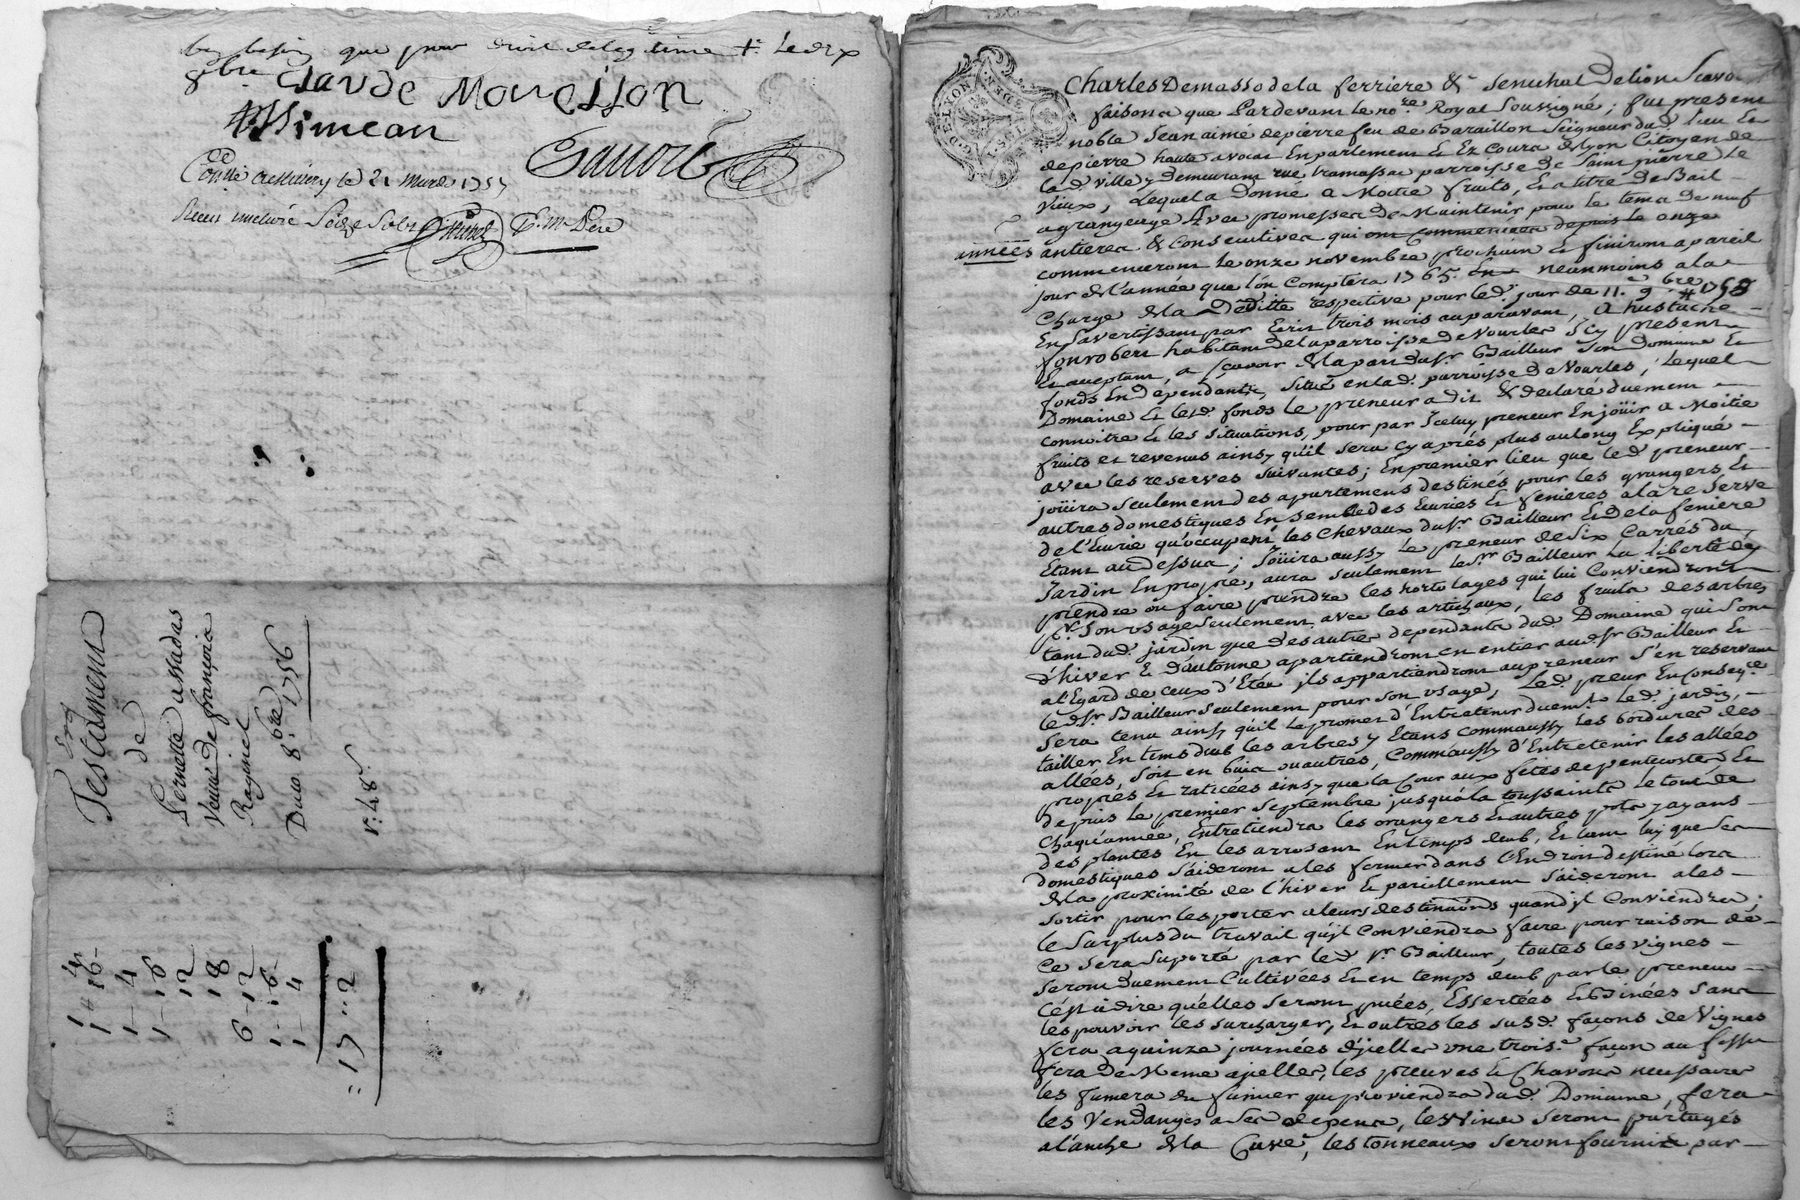 que pour droit de legitime + Le dix
8bre Claude Moueillon
A Simean
Sauore
Conllé a le 21 Mars 1757
Recu
Testament
de
Pernette assadas
Veuve de françois
Raginel
Du 10 8.bre 1756
r.: 48.
1 # 4
1 - 16 -
1 - 4
1 - 16
12
18
6 - 12
1 - 16
1 - 4
: 17 .. 2
G. D. LYON
Charles Demasso de la ferriere & Senechal De lion Scavoir
faisons que Pardevant le no.re Royal Soussigné ; fut present
noble Jean aimé depierrefeu de Baraillon Seigneur dud. lieu et
depierre haute avocat En parlement & Ez Cours de lyon Citoyen de
lad. ville y demeurant rue tramassac parroisse de Saint pierre Le
vieux, Lequel a Donné a Moitié fruits, et a titre de Bail -
a grangeage Avec promesses de Maintenir pour le tems de neuf
années antieres & Consecutives qui ont commencées depuis le onze
commenceront Le onze novembre prochain et finiront a pareil
jour de l'année que l'on Comptera 1765. neanmoins a la
Charge de la Deditte respective pour led. jour de 11. 9.bre 1758
En S'avertissant par Ecrit trois mois auparavant, A hustache
fonrobert habitant de la parroisse de Vourles Icy present
Et aceptant, a Scavoir de la part du Sr. Bailleur Son Domaine Et
fonds En Dependants, Situé en lad. parroisse De Vourles, Lequel
Domaine et lesd. fonds le preneur a dit & declaré duement
connoitre et les Situations, pour par Iceluy preneur En joüir a Moitié
fruits et revenus ainsy qu'il Sera Cy après plus au long Expliqué -
avec les reserves Suivantes ; En premier lieu que led. preneur
joüira seulement des apartemens destinés pour les grangers Et
autres domestiques Ensemble des Ecuries Et fenieres a la reserve
de l'Ecurie qu'occupent les Chevaux du Sr. Bailleur Et de la feniere
Etant au dessus ; Joüira aussy Le preneur de Six Carrés du
Jardin En propre, aura seulement le Sr. Bailleur La liberté de
prendre ou faire prendre les hortolages qui lui Conviendront
pr. Son usage seulement avec les artichaux, les fruits des arbres
tant dud. jardin que des autres dependants dud. Domaine qui Sont
d'hiver & d'autonne apartiendront en entier aud. Sr. Bailleur Et
a l'Egard de ceux d'Eté ils appartiendront au preneur S'en reservant
le d. Sr. Bailleur seulement pour son usage, Led. pneur En Conseq.ce
Sera tenu ainsy qu'il le promet d'Entretenir duemt. Led. jardin, -
tailler En tems dub les arbres y Etans Comm'aussy les bordures des
allées, Soit en buis ou autres, Comm'aussy d'Entretenir les allées
propres Et raticées ainsy que la Cour aux fetes de pentecostes Et
depuis le premier Septembre jusqu'a la toussaints Le tout de
Chaque année, Entretiendra les orangers Et autres pots ayans -
des plantes En les arrosant En temps dub, Et tant luy que Ses
domestiques S'aideront a les fermer dans l'Endroit destiné lors
de la proximité de l'hiver Et pareillement S'aideront a les -
Sortir pour les porter a leurs destinations quand il Conviendra ;
le Surplus du travail qu'il Conviendra faire pour raison de
Ce Sera Suporté par led. Sr. Bailleur, toutes les vignes -
Seront duement Cultivées Et en temps dub par le preneur
C'est a dire qu'elles Seront puées, Essertées & Binées Sans
les pouvoir les Surcharger, Et outres les Susd. façons de Vignes
fera a quinze journées d'jcelles une trois.e façon au fessu
fera De Meme ajcelles, les preuves & Chavons necessaires
les fumera du fumier qui proviendra dud. Domaine, fera
les Vendanges a Ses depens, les Vins Seront partagés
a l'anche de la Cuve, les tonneaux Seront fournis par -